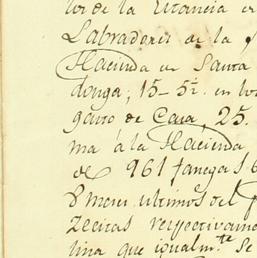 tor de la Estancia en
Labradores de la
Hacienda en Santa
donga; 15–5½ en los
gasto de Casa, 25.
ma á la Hacienda
de 961 fanegas 6
8 meses ultimos del
Zecitas respectivam
lina que igualm.te se